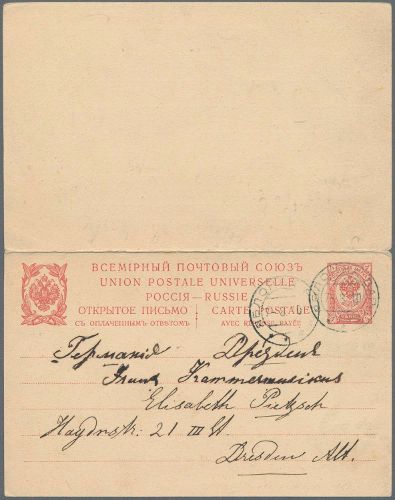 ВСЕМІРНЫЙ ПОЧТОВЫЙ СОЮЗЪ
UNION POSTALE UNIVERSELLE
РОССІЯ — RUSSIE
ОТКРЫТОЕ ПИСЬМО CARTE POSTALE
СЪ ОПЛАЧЕННЫМЪ ОТВѢТОМЪ. AVEC RÉPONSE PAYÉE
Германія Дрезденъ
Frau Kammermusikus
Elisabeth Pietzsch
Haydnstr. 21 III Et.
Dresden Alt.